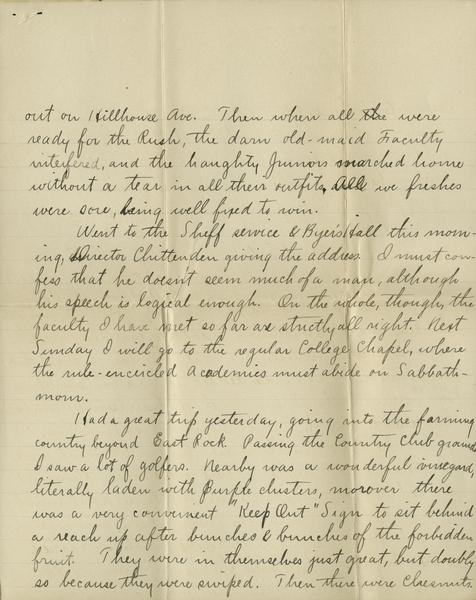 out on Hillhouse Ave. Then when all the were
ready for the Rush, the darn old-maid Faculty
interfered, and the haughty Juniors marched home
without a tear in all their outfits. All we freshes
were sore, being well fixed to win.
Went to the Sheff service @ Byers Hall this morn-
ing, Director Chittenden giving the address. I must con-
fess that he doesn't seem much of a man, although
his speech is logical enough. On the whole, though, the
faculty I have met so far are strictly all right. Next
Sunday I will go to the regular College Chapel, where
the rule-encircled Academics must abide on Sabbath-
morn.
Had a great trip yesterday, going into the farming
country beyond East Rock. Passing the Country Club grounds
I saw a lot of golfers. Nearby was a wonderful vineyard,
literally laden with purple clusters, morover there
was a very convenient "Keep Out" Sign to sit behind
a reach up after bunches & bunches of the forbidden
fruit. They were in themselves just great, but doubly
so because they were swiped. Then there were Chesnuts.